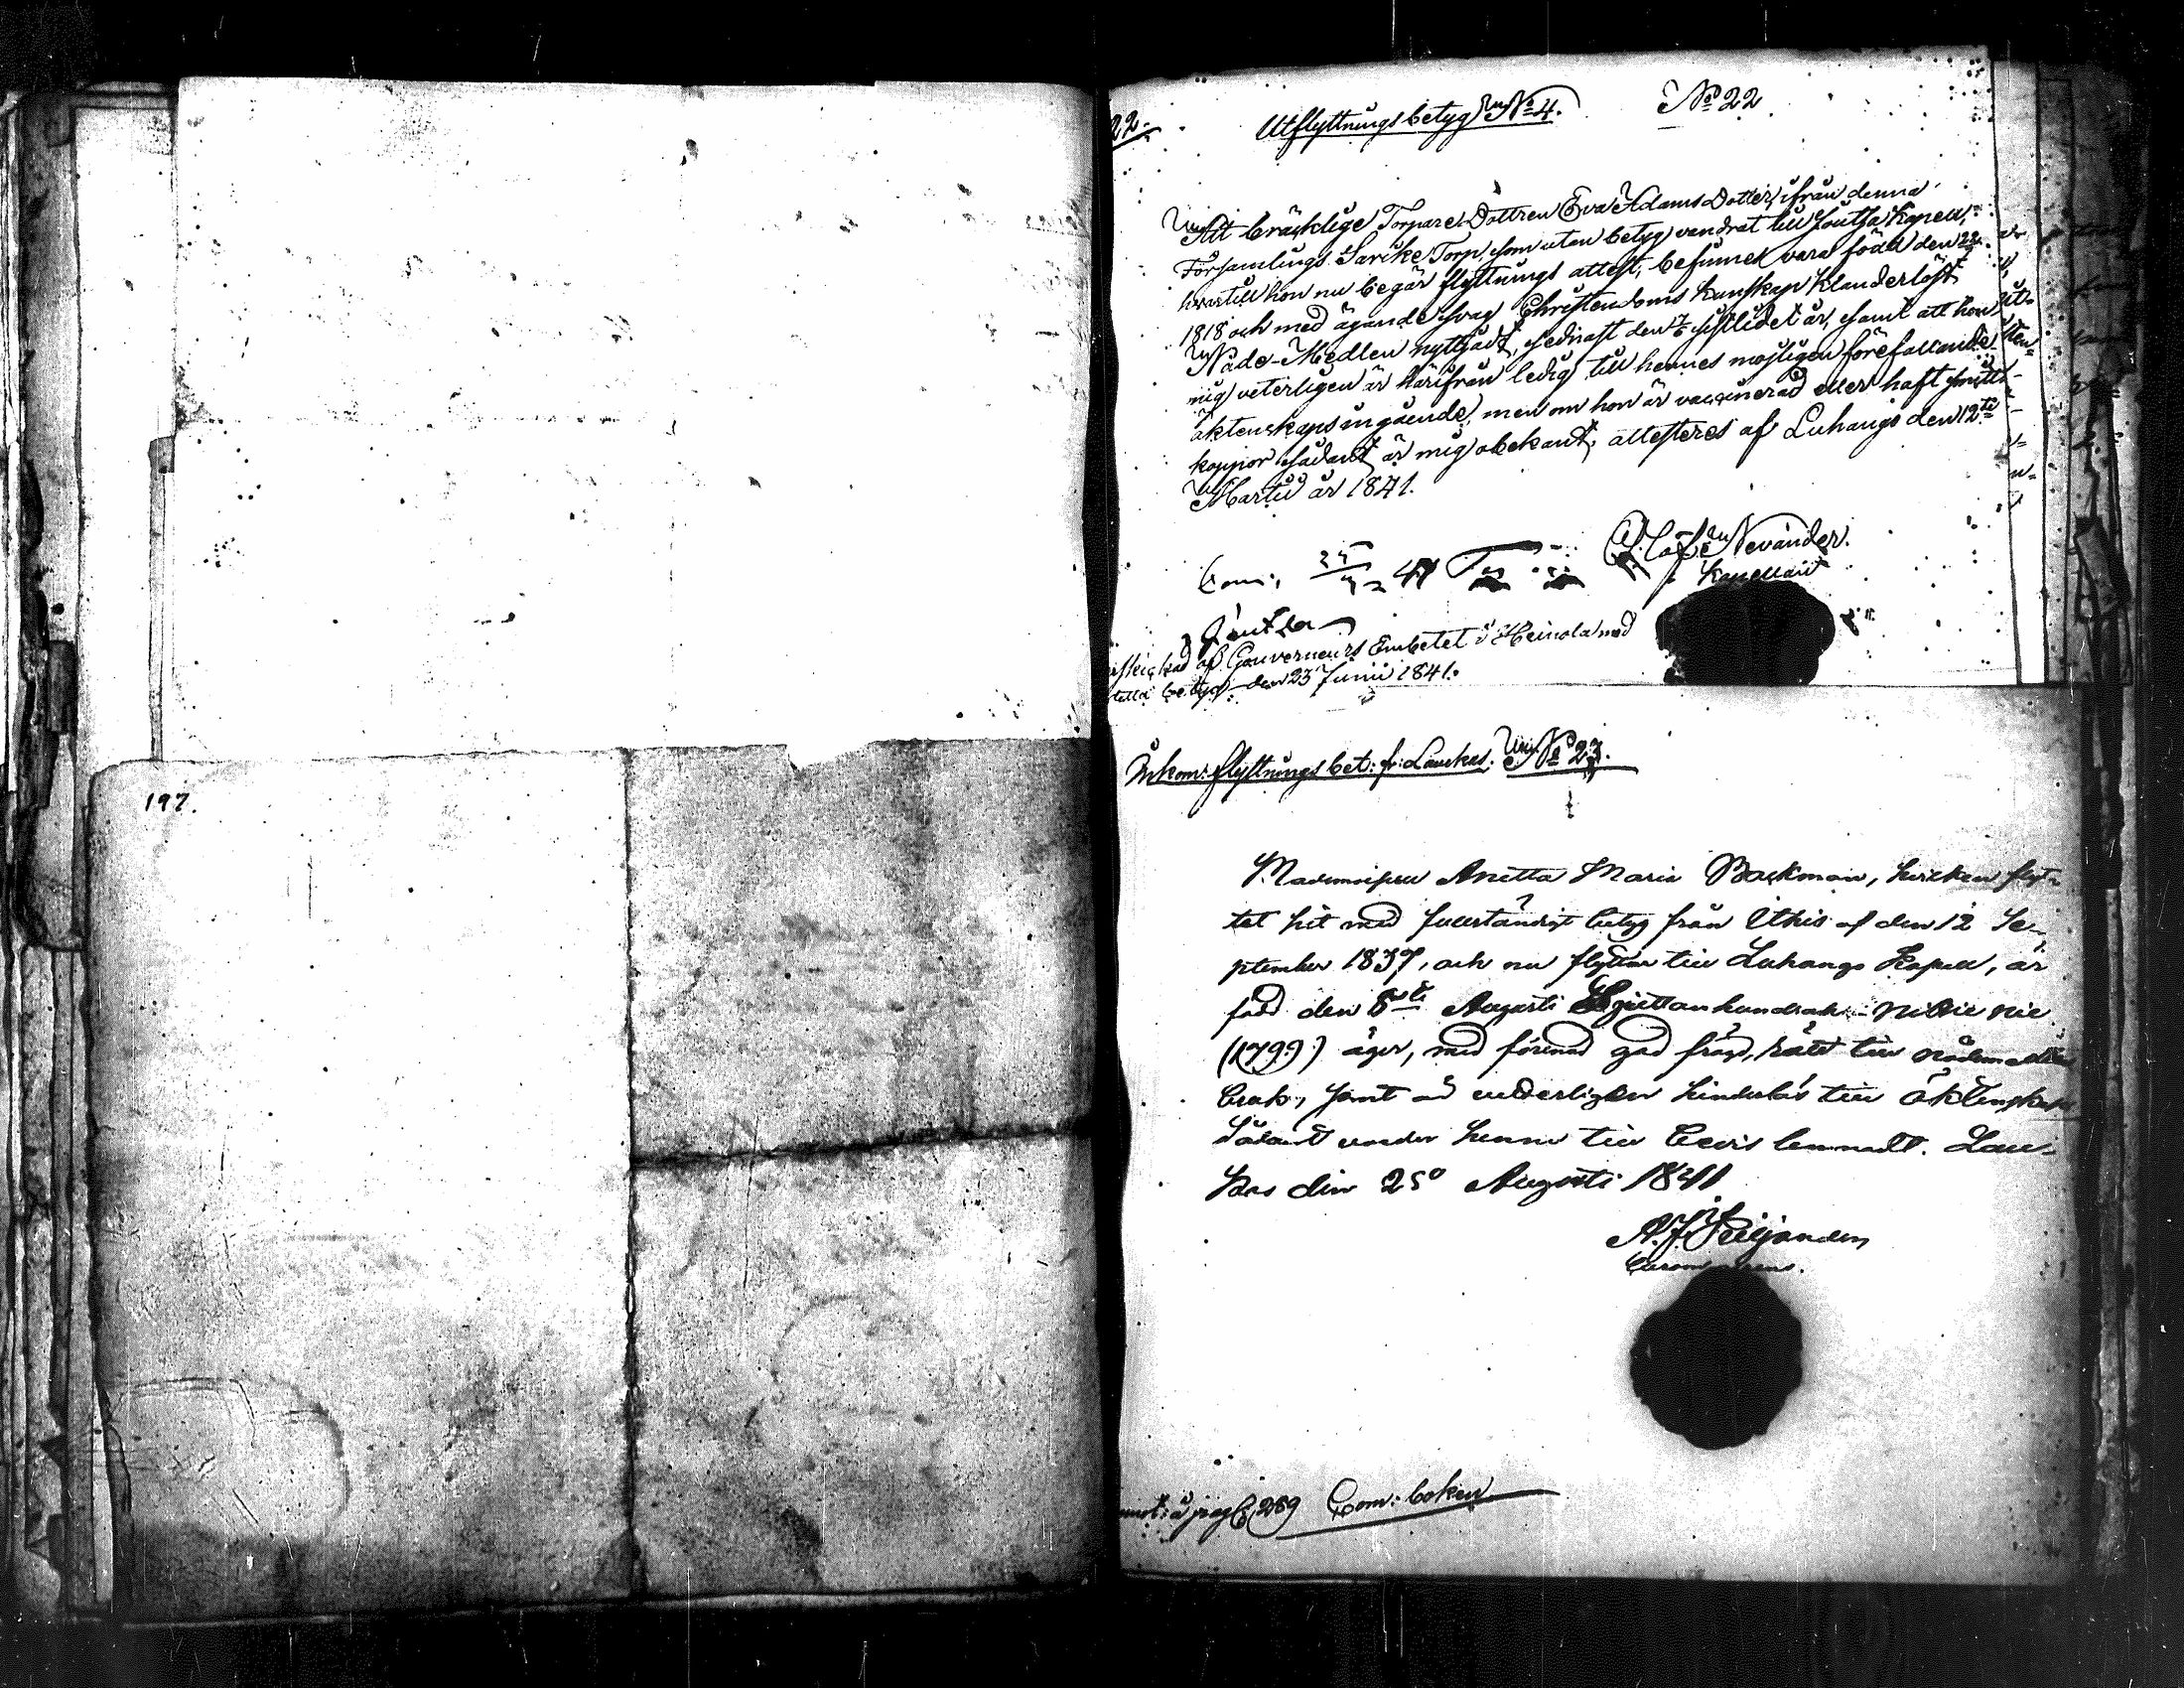 22.
Utflyttningsbetyg N:o 4. N:o 22
Att bräcklige Torpare Dottren Eva Adams Dotter, ifrån denna
Församlings Sarike Torp, som utan betyg vandrat till Joutsa Kapell,
hvartill hon nu begär flyttnings attest, befunnen vara född den 22
1818 och med ägande svag Christendoms kunskap klanderlöst
Nåde-Medlen nyttjadt, sednast den sistlidet år, samt att hon
mig veterligen är härifrån ledig till hennes möjligen förefallande
äktenskaps ingående, men om hon är vaccinerad eller haft smitt-
koppor sådant är mig obekant; attesteras af Luhango den 12te
Martii år 1841.
Olof Nevander.
Kapellan
Joutsa
af Gouverneurs Embetet i Heinola med
betyg den 23 Junii 1841.
Inkom: flyttnings bet: fr: Laukas. N:o 23.
197.
Mademoisell Anetta Maria Backman, hvilken flyt-
tet hit med fullständigt betyg från Itkis af den 12 Se-
ptember 1837, och nu flyttar till Luhango Kapell, är
född den 8de Augusti Sjuttonhundrade Nittie nie
(1799) äger, med förenad god fräjd, rätt till nådemedlens
bruk, samt är vederligen hinderlös till äktenskap
Sådant varder henne till bevis lemnadt. Lau-
kas den 25 Augusti 1841
A. J. Kiljander
å pag 289 Com: boken